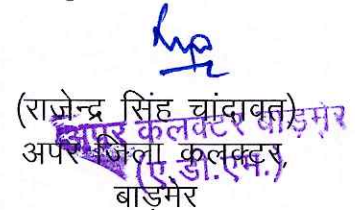 (राजेन्द्र सिंह चांदावत)
अपर कलक्टर बाड़मेर
अपर जिला कलक्टर,
(ए.डी.एम.)
बाड़मेर